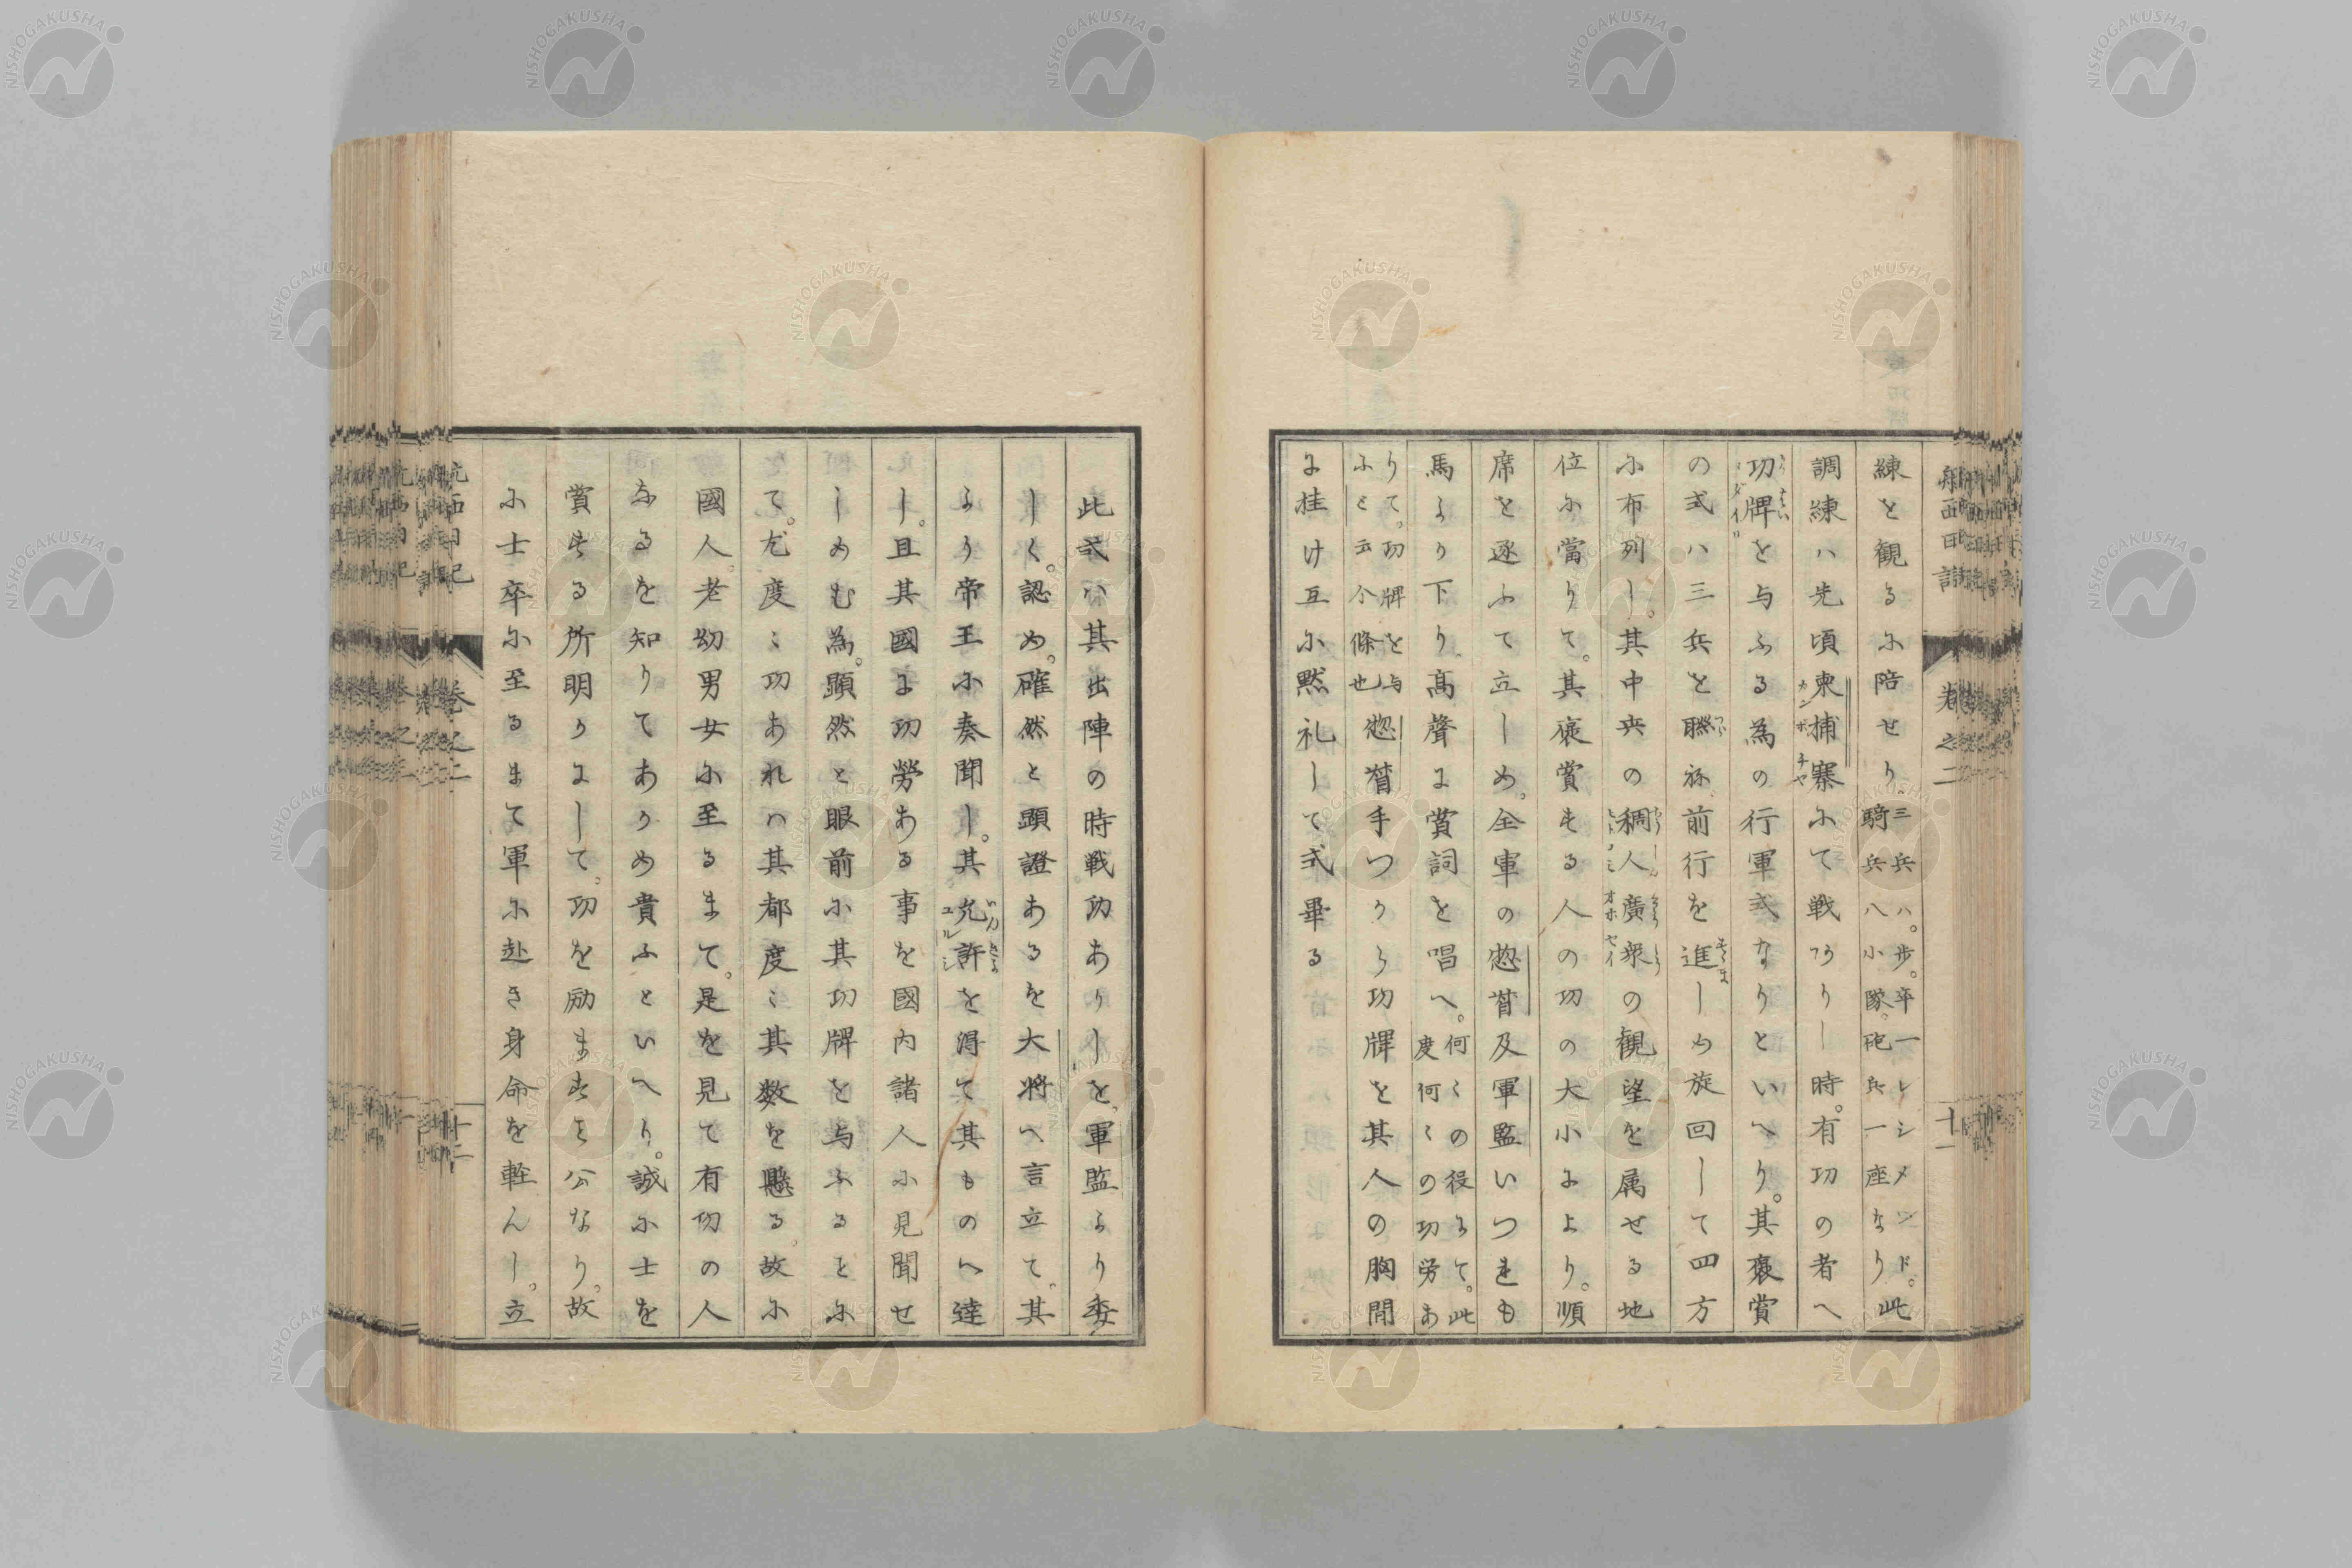 練を観るに陪せり、三兵ハ。歩。卒一レシメンド。騎兵八小隊。砲兵一座なり 此
調練ハ先頃柬捕寨にて戦ありし時。有功の者へ
功牌を与ふる為の行軍式なりといへり。其褒賞
の式ハ三兵を聯ね前行を進しめ旋回して四方
に布列し。其中央の稠人廣衆の観望を属せる地
位に當りて。其褒賞する人の功の大小により。順
席を逐ふて立しめ。全軍の惣督及軍監いつれも
馬より下り高聲に賞詞を唱へ。何〻の役にて。此度何〻の功労あ
りて。功牌を与ふと云个條也 惣督手つから功牌を其人の胸間
に挂け互に黙礼して式畢る
此式ハ其出陣の時戦功ありしを、軍監より委
しく。認め。確然と顕證あるを大将へ言立て。其
より帝王に奏聞し。其允許を得て其ものへ達
し。且其國に功勞ある事を國内諸人に見聞せ
しめむ為。顕然と眼前に其功牌を与ふることに
て。尤度〻功あれハ其都度〻其数を懸る。故に
國人。老幼男女に至るまて。是を見て有功の人
なるを知りてあかめ貴ふといへり。誠に士を
賞する所明かにして。功を励ますこと公なり。故
に士卒に至るまて軍に赴き身命を軽んし。立
航西日記
巻之二
十一
航西日記
巻之二
十二
NISHOGAKUSHA